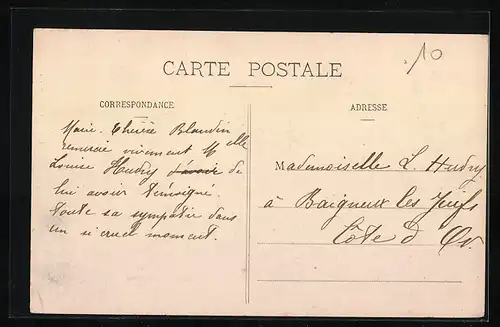 10
CARTE POSTALE
CORRESPONDANCE
Marie-Thérèse Blandin
remercie vivement Melle
Louise Hudry d'avoir de
lui avoir témoigné
toute sa sympathie dans
un si cruel moment.
ADRESSE
Mademoiselle L. Hudry
à Baigneux les Juifs
Côte d Or.